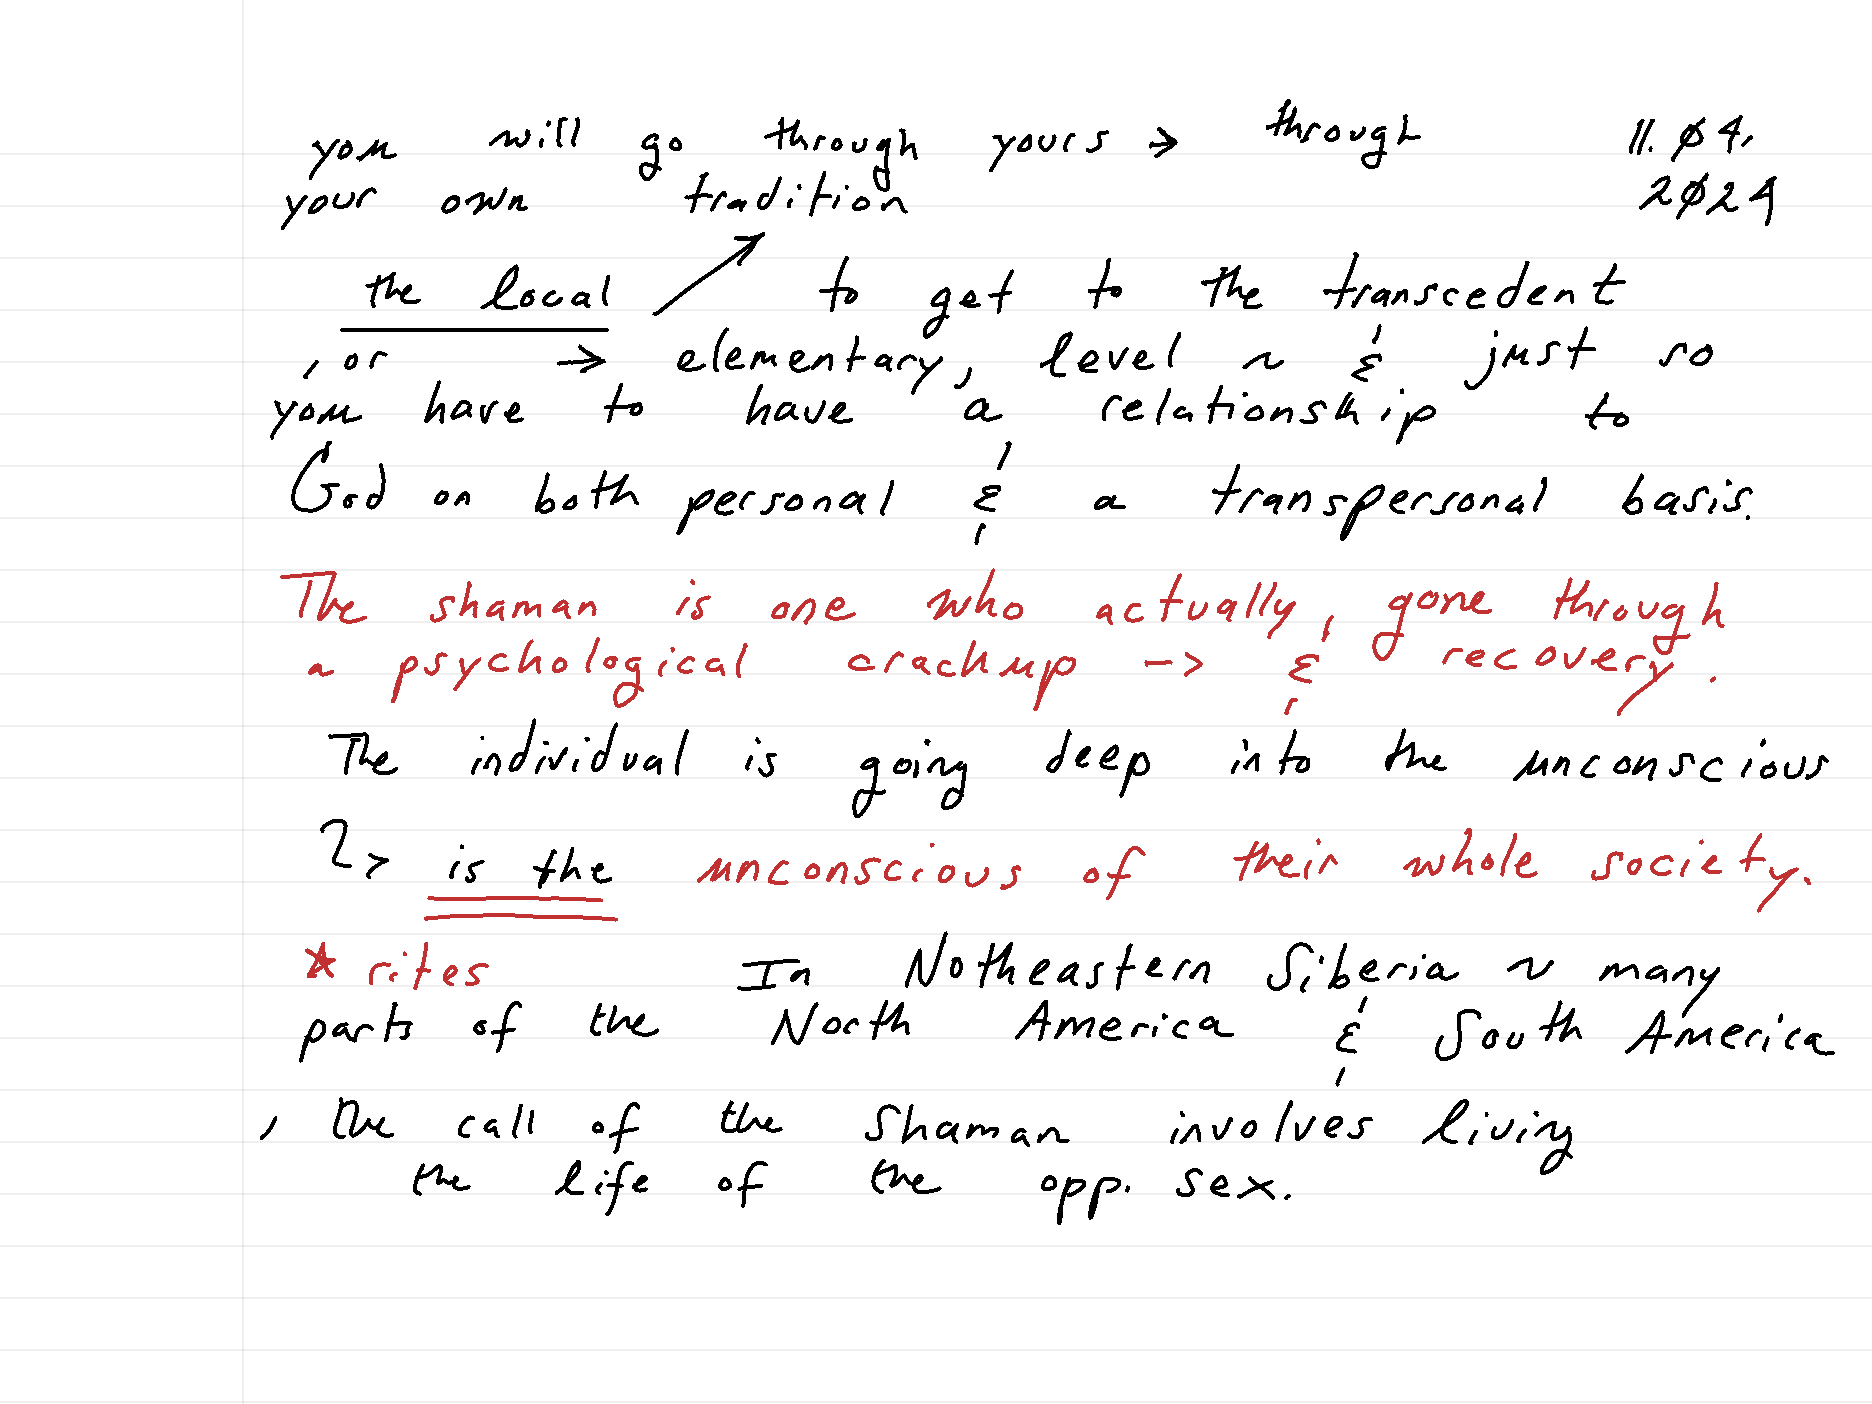 you will go through yours → through 11.04.
your own tradition 2024
the local ↗ to get to the transcedent
, or → elementary, level ~ & just so
you have to have a relationship to
God on both personal & a transpersonal basis.
The shaman is one who actually, gone through
a psychological crackup -> & recovery.
The individual is going deep into the unconscious
↳ is the unconscious of their whole society.
★ rites In Notheastern Siberia ~ many
parts of the North America & South America
, the call of the Shaman involves living
the life of the opp. sex.